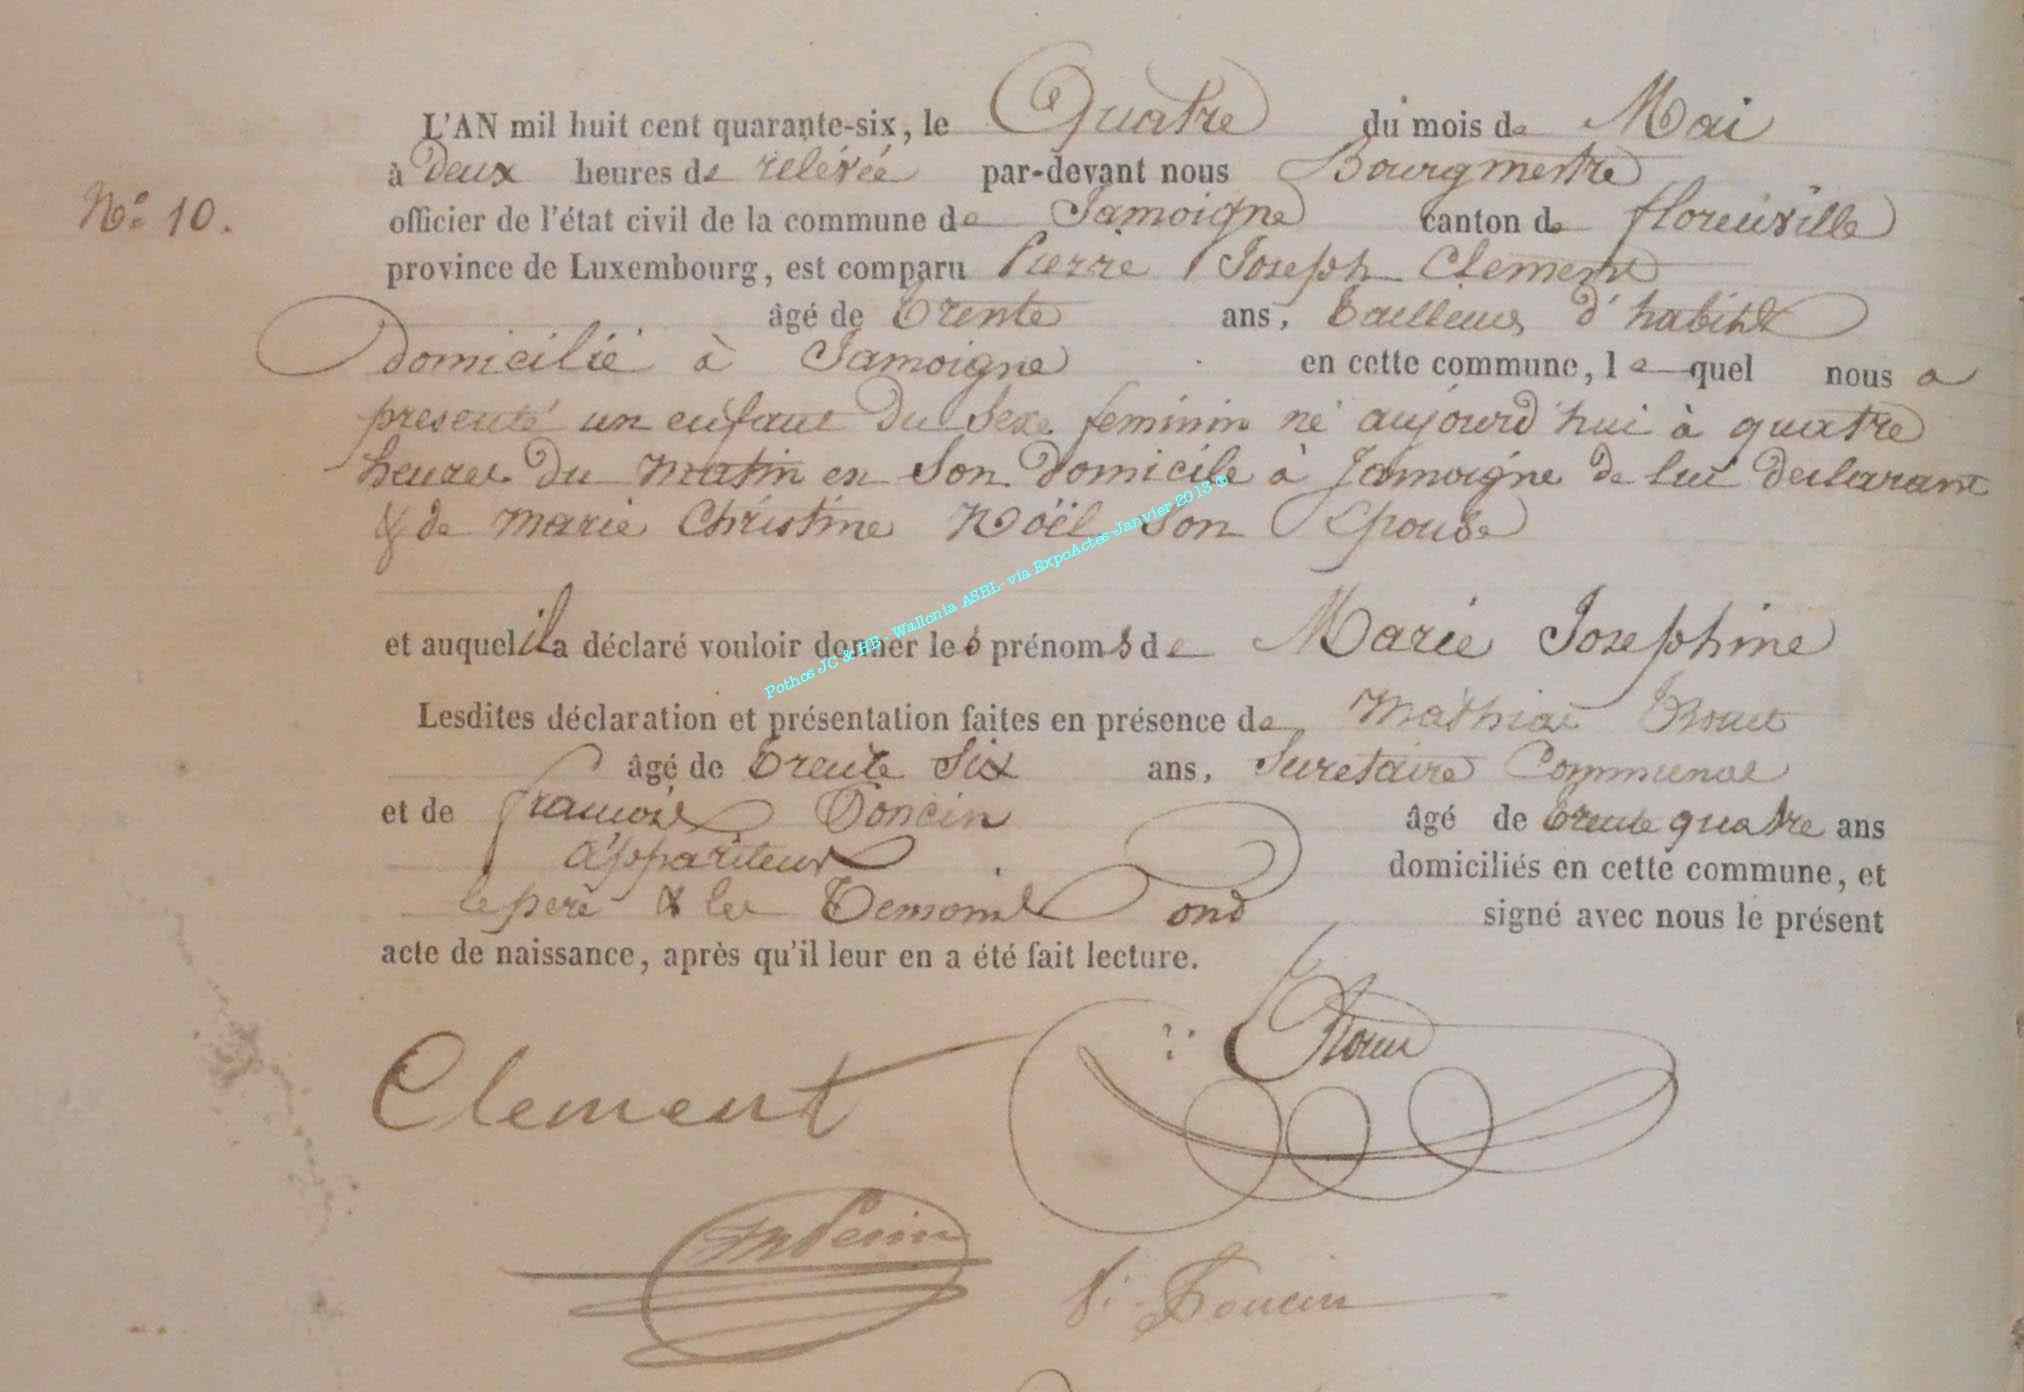 L'AN mil huit cent quarante-six, le Quatre du mois de Mai
à deux heures de relévée par-devant nous Bourgmestre
N° 10.
officier de l'état civil de la commune de Jamoigne canton de florenville
province de Luxembourg, est comparu Pierre Joseph Clement
âgé de trente ans, tailleur d'habits
domicilié à Jamoigne en cette commune, lequel nous a
presenté un enfant du sexe feminin né aujourd'hui à quatre
heures du matin en son domicile à Jamoigne de lui declarant
& de marie Christine Noël son Epouse
et auquel il a déclaré vouloir donner les prénoms de Marie Josephine
Lesdites déclaration et présentation faites en présence de Mathias
âgé de trente six ans, Secretaire Communal
et de françois Toncin âgé de trente quatre ans
appariteur domiciliés en cette commune, et
le pere & les temoins ond signé avec nous le présent
acte de naissance, après qu'il leur en a été fait lecture.
Clement
f. Toncin
Pothos JC & HB - Wallonia ASBL - via ExpoActes - Janvier 2013 ©